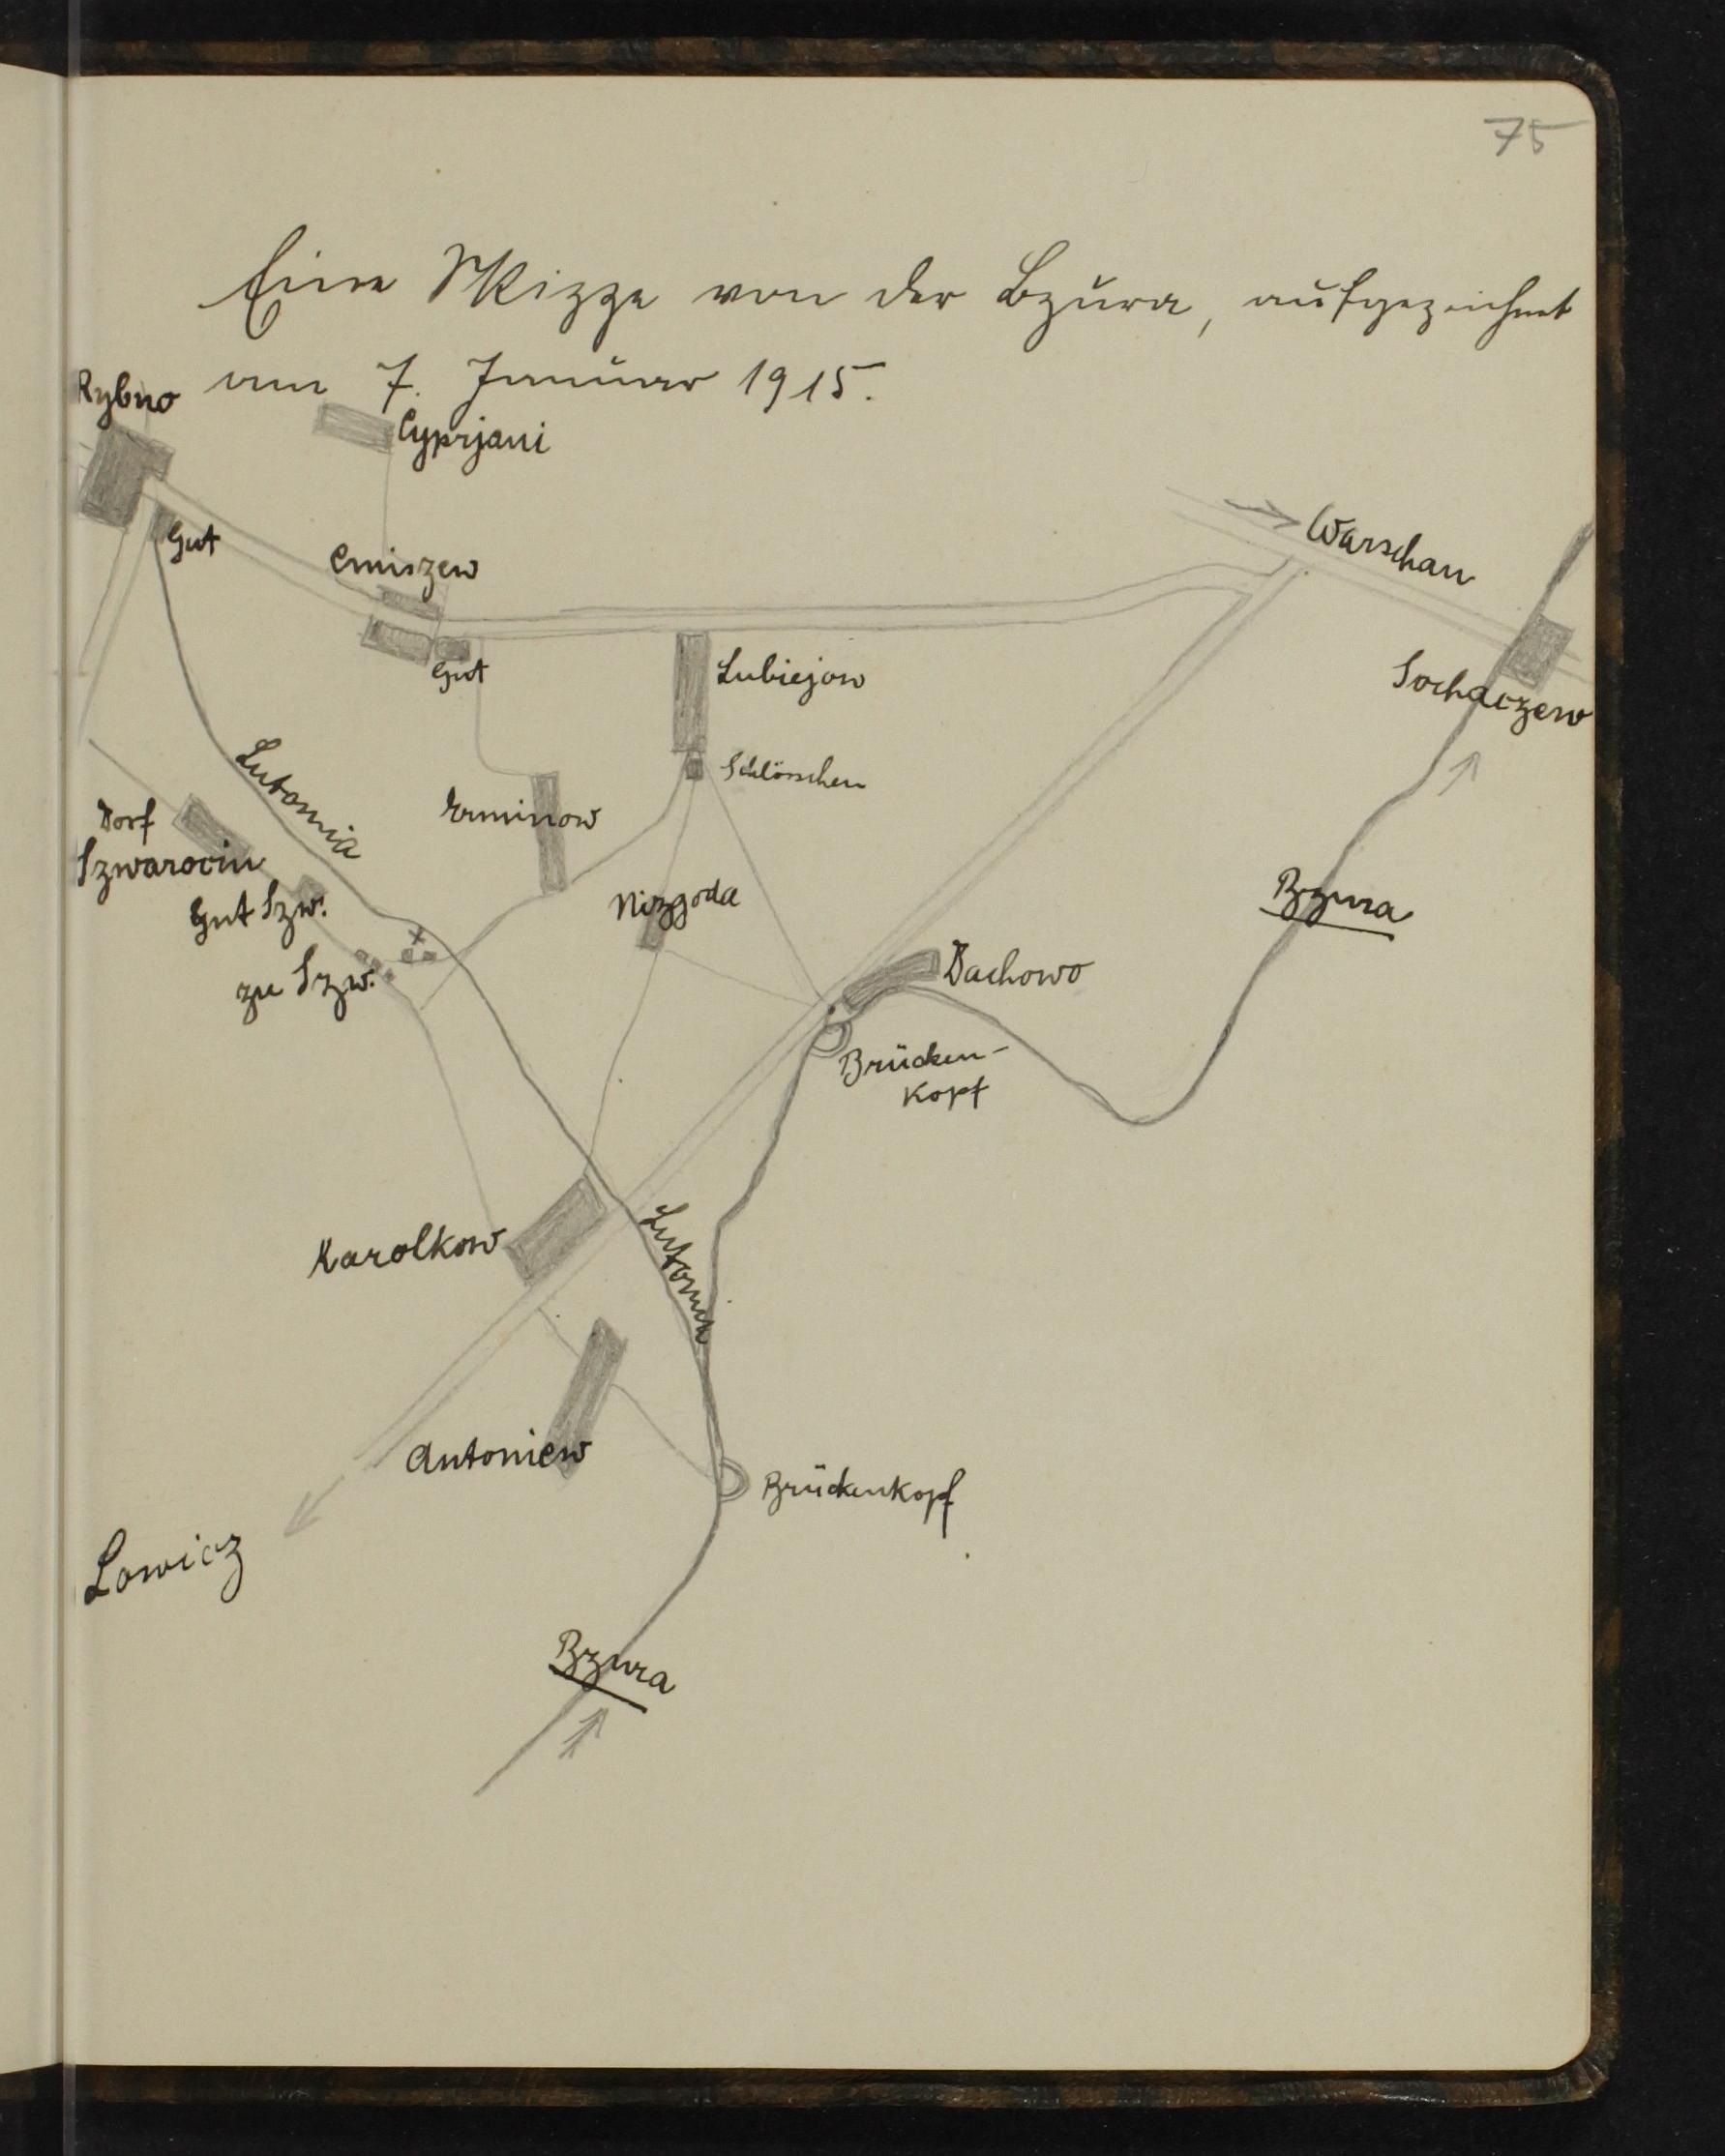 75
Eine Skizze von der Bzura, aufgezeichnet
am 7. Januar 1915.
Rybno
Cyprjani
Gut
Emiszew
Gut
Warschau
Sochaczew
Lubiejow
Schlösschen
Lutomia
Erminow
Dorf
Szwarocin
Gut Szw.
zu Szw.
Nizgoda
Bzura
Dachowo
Brücken-
kopf
Karolkow
Lutomia
Antoniew
Brückenkopf
Lowicz
Bzura